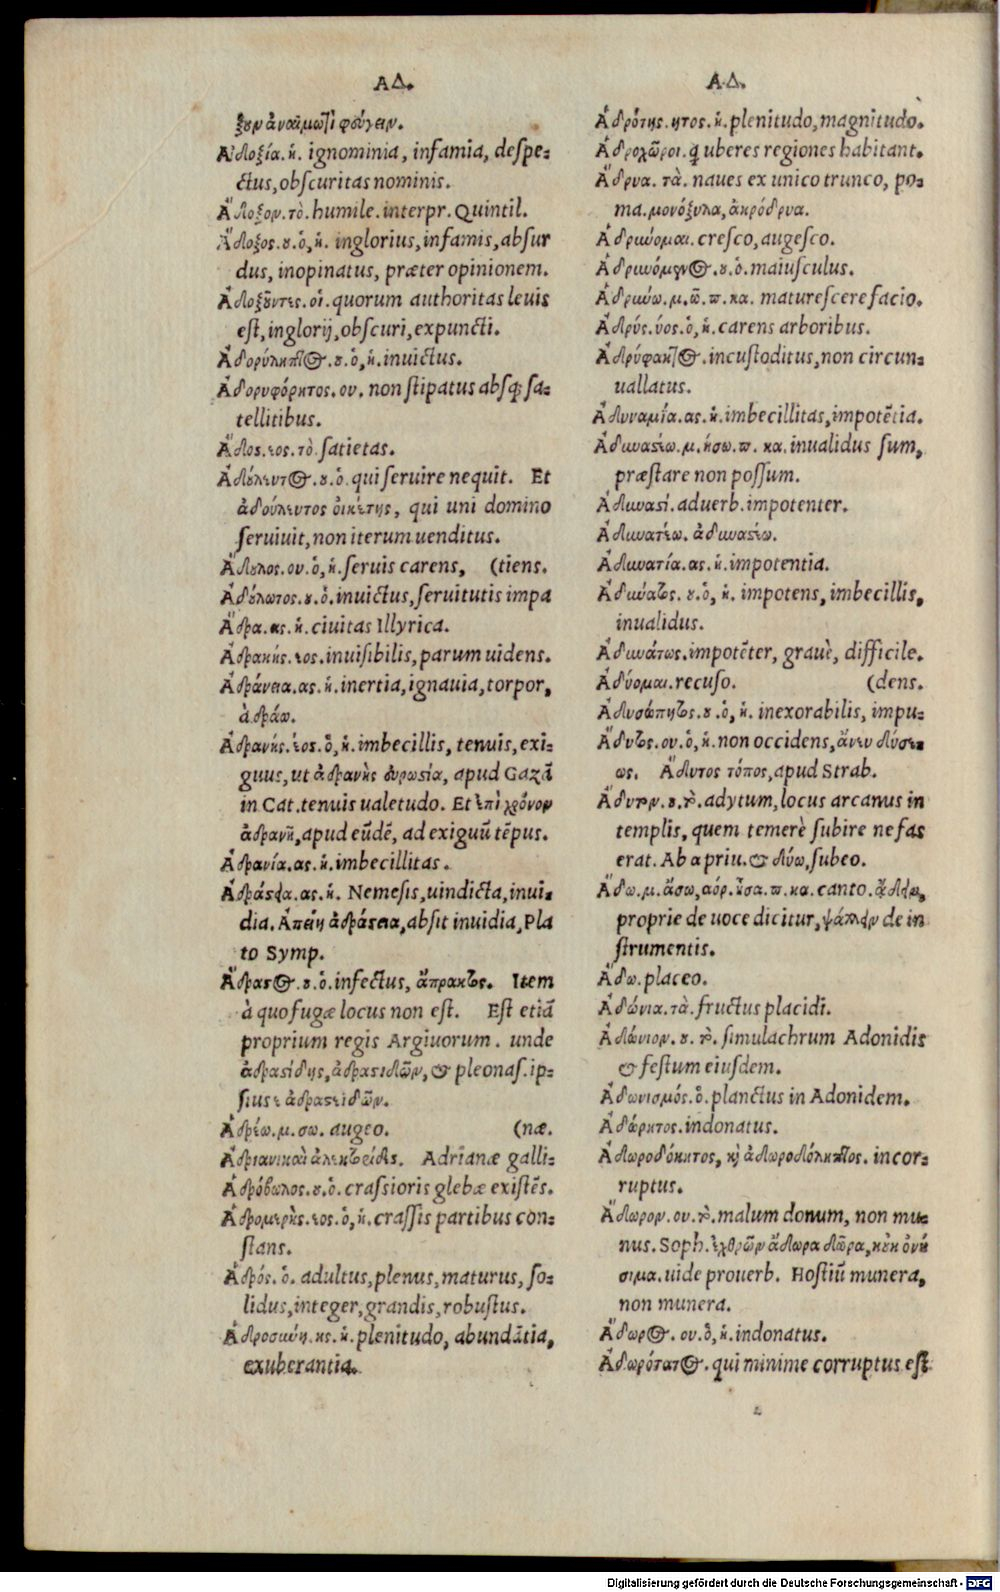 ΑΔ.
ξουν ἀναιμωτὶ φεύγειν.
Ἀδοξία. ἡ. ignominia, infamia, despe-
ctus, obscuritas nominis.
Ἄδοξον. τὸ. humile. interpr. Quintil.
Ἄδοξος. ου. ὁ, ἡ. inglorius, infamis, absur
dus, inopinatus, præter opinionem.
Ἀδοξοῦντες. οἱ. quorum authoritas leuis
est, inglorij, obscuri, expuncti.
Ἀδορύληπτος. ου. ὁ, ἡ. inuictus.
Ἀδορυφόρητος. ου. non stipatus absq; sa-
tellitibus.
Ἄδος. εος. τὸ. satietas.
Ἀδούλευτος. ου. ὁ. qui seruire nequit. Et
ἀδούλευτος οἰκέτης, qui uni domino
seruiuit, non iterum uenditus.
Ἄδουλος. ου. ὁ, ἡ. seruis carens, (tiens.
Ἀδούλωτος. ου. ὁ. inuictus, seruitutis impa
Ἄδρα. ας. ἡ. ciuitas Illyrica.
Ἀδρακής. εος. inuisibilis, parum uidens.
Ἀδράνεια. ας. ἡ. inertia, ignauia, torpor,
à δράω.
Ἀδρανής. έος. ὁ, ἡ. imbecillis, tenuis, exi-
guus, ut ἀδρανὴς εὐρωσία, apud Gazā
in Cat. tenuis ualetudo. Et ἐπὶ χρόνον
ἀδρανῆ, apud eūdē, ad exiguū tēpus.
Ἀδρανία. ας. ἡ. imbecillitas.
Ἀδράστεια. ας. ἡ. Nemesis, uindicta, inui-
dia. Ἀπείη ἀδράστεια, absit inuidia, Pla
to Symp.
Ἄδραστος. ου. ὁ. infectus, ἄπρακτος. Item
à quo fugæ locus non est. Est etiā
proprium regis Argiuorum. unde
ἀδραστίδης, ἀδραστιδῶν, & pleonas. ip-
sius ε ἀδραστειδῶν.
Ἀδρέω. μ. σω. augeo. (næ.
Ἀδριανικαὶ ἀλεκτορίδες. Adrianæ galli-
Ἀδρόβωλος. ου. ὁ. crassioris glebæ existēs.
Ἀδρομερὴς. εος. ὁ, ἡ. crassis partibus con-
stans.
Ἀδρός. ὁ. adultus, plenus, maturus, so-
lidus, integer, grandis, robustus.
Ἀδροσύνη. ης. ἡ. plenitudo, abundātia,
exuberantia.
Α Δ.
Ἀδρότης. ητος. ἡ. plenitudo, magnitudo.
Ἀδροχῶροι. q̃ uberes regiones habitant.
Ἄδρυα. τὰ. naues ex unico trunco, po-
ma. μονόξυλα, ἀκρόδρυα.
Ἀδρύνομαι. cresco, augesco.
Ἀδρυνόμενος. ου. ὁ. maiusculus.
Ἀδρύνω. μ. ῶ. π. κα. maturescere facio.
Ἄδρυς. υος. ὁ, ἡ. carens arboribus.
Ἀδρύφακτος. incustoditus, non circun-
uallatus.
Ἀδυναμία. ας. ἡ. imbecillitas, impotētia.
Ἀδυναστέω. μ. ήσω. π. κα. inualidus sum,
præstare non possum.
Ἀδυναστί. aduerb. impotenter.
Ἀδυνατέω. ἀδυναστέω.
Ἀδυνατία. ας. ἡ. impotentia.
Ἀδύνατος. ου. ὁ, ἡ. impotens, imbecillis,
inualidus.
Ἀδυνάτως. impotēter, grauè, difficile.
Ἀδύομαι. recuso. (dens.
Ἀδυσώπητος. ου. ὁ, ἡ. inexorabilis, impu-
Ἄδυτος. ου. ὁ, ἡ. non occidens, ἄνευ δύσε-
ως. Ἄδυτος τόπος, apud Strab.
Ἄδυτον. ου. τὸ. adytum, locus arcanus in
templis, quem temerè subire nefas
erat. Ab a priu. & δύω, subeo.
Ἄδω. μ. ᾄσω, αόρ. ᾖσα. π. κα. canto. ᾄδειν,
proprie de uoce dicitur, ψάλλειν de in
strumentis.
Ἄδω. placeo.
Ἀδώνια. τὰ. fructus placidi.
Ἀδώνιον. ου. τὸ. simulachrum Adonidis
& festum eiusdem.
Ἀδωνισμός. ὁ. planctus in Adonidem.
Ἀδώρητος. indonatus.
Ἀδωροδόκητος, κὶ ἀδωροδόληπτος. incor-
ruptus.
Ἄδωρον. ου. τὸ. malum donum, non mu-
nus. Soph. ἐχθρῶν ἄδωρα δῶρα, κοὐκ ὀνή
σιμα. uide prouerb. Hostiū munera,
non munera.
Ἄδωρος. ου. ὁ, ἡ. indonatus.
Ἀδωρότατος. qui minime corruptus est
Digitalisierung gefördert durch die Deutsche Forschungsgemeinschaft - DFG